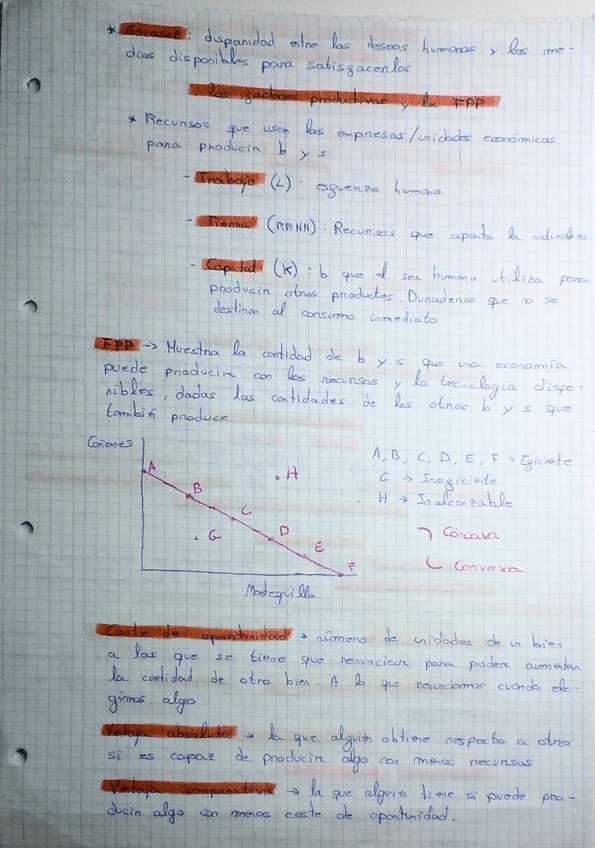 * Escasez: disparidad entre los deseos humanos y los me-
dios disponibles para satisfacerlos
Los factores productivos y la FPP
* Recursos que usan las empresas/unidades económicas
para producir b y s
- Trabajo (L): esfuerzo humano
- Tierra (RRNN): Recursos que aporta la naturaleza
- Capital (K): b que el ser humano utiliza para
producir otros productos. Duraderos que no se
destinan al consumo inmediato
FPP -> Muestra la cantidad de b y s que una economía
puede producir con los recursos y la tecnología dispo-
nibles, dadas las cantidades de los otros b y s que
también produce
Cañones
A
B
C
D
E
F
G
H
Mantequilla
A, B, C, D, E, F -> Eficiente
G -> Ineficiente
H -> Inalcanzable
Cóncava
Convexa
Coste de oportunidad -> número de unidades de un bien
a las que se tiene que renunciar para poder aumentar
la cantidad de otro bien. A lo que renunciamos cuando ele-
gimos algo
Ventaja absoluta -> la que alguien obtiene respecto a otro
si es capaz de producir algo con menos recursos
Ventaja comparativa -> la que alguien tiene si puede pro-
ducir algo con menos coste de oportunidad.